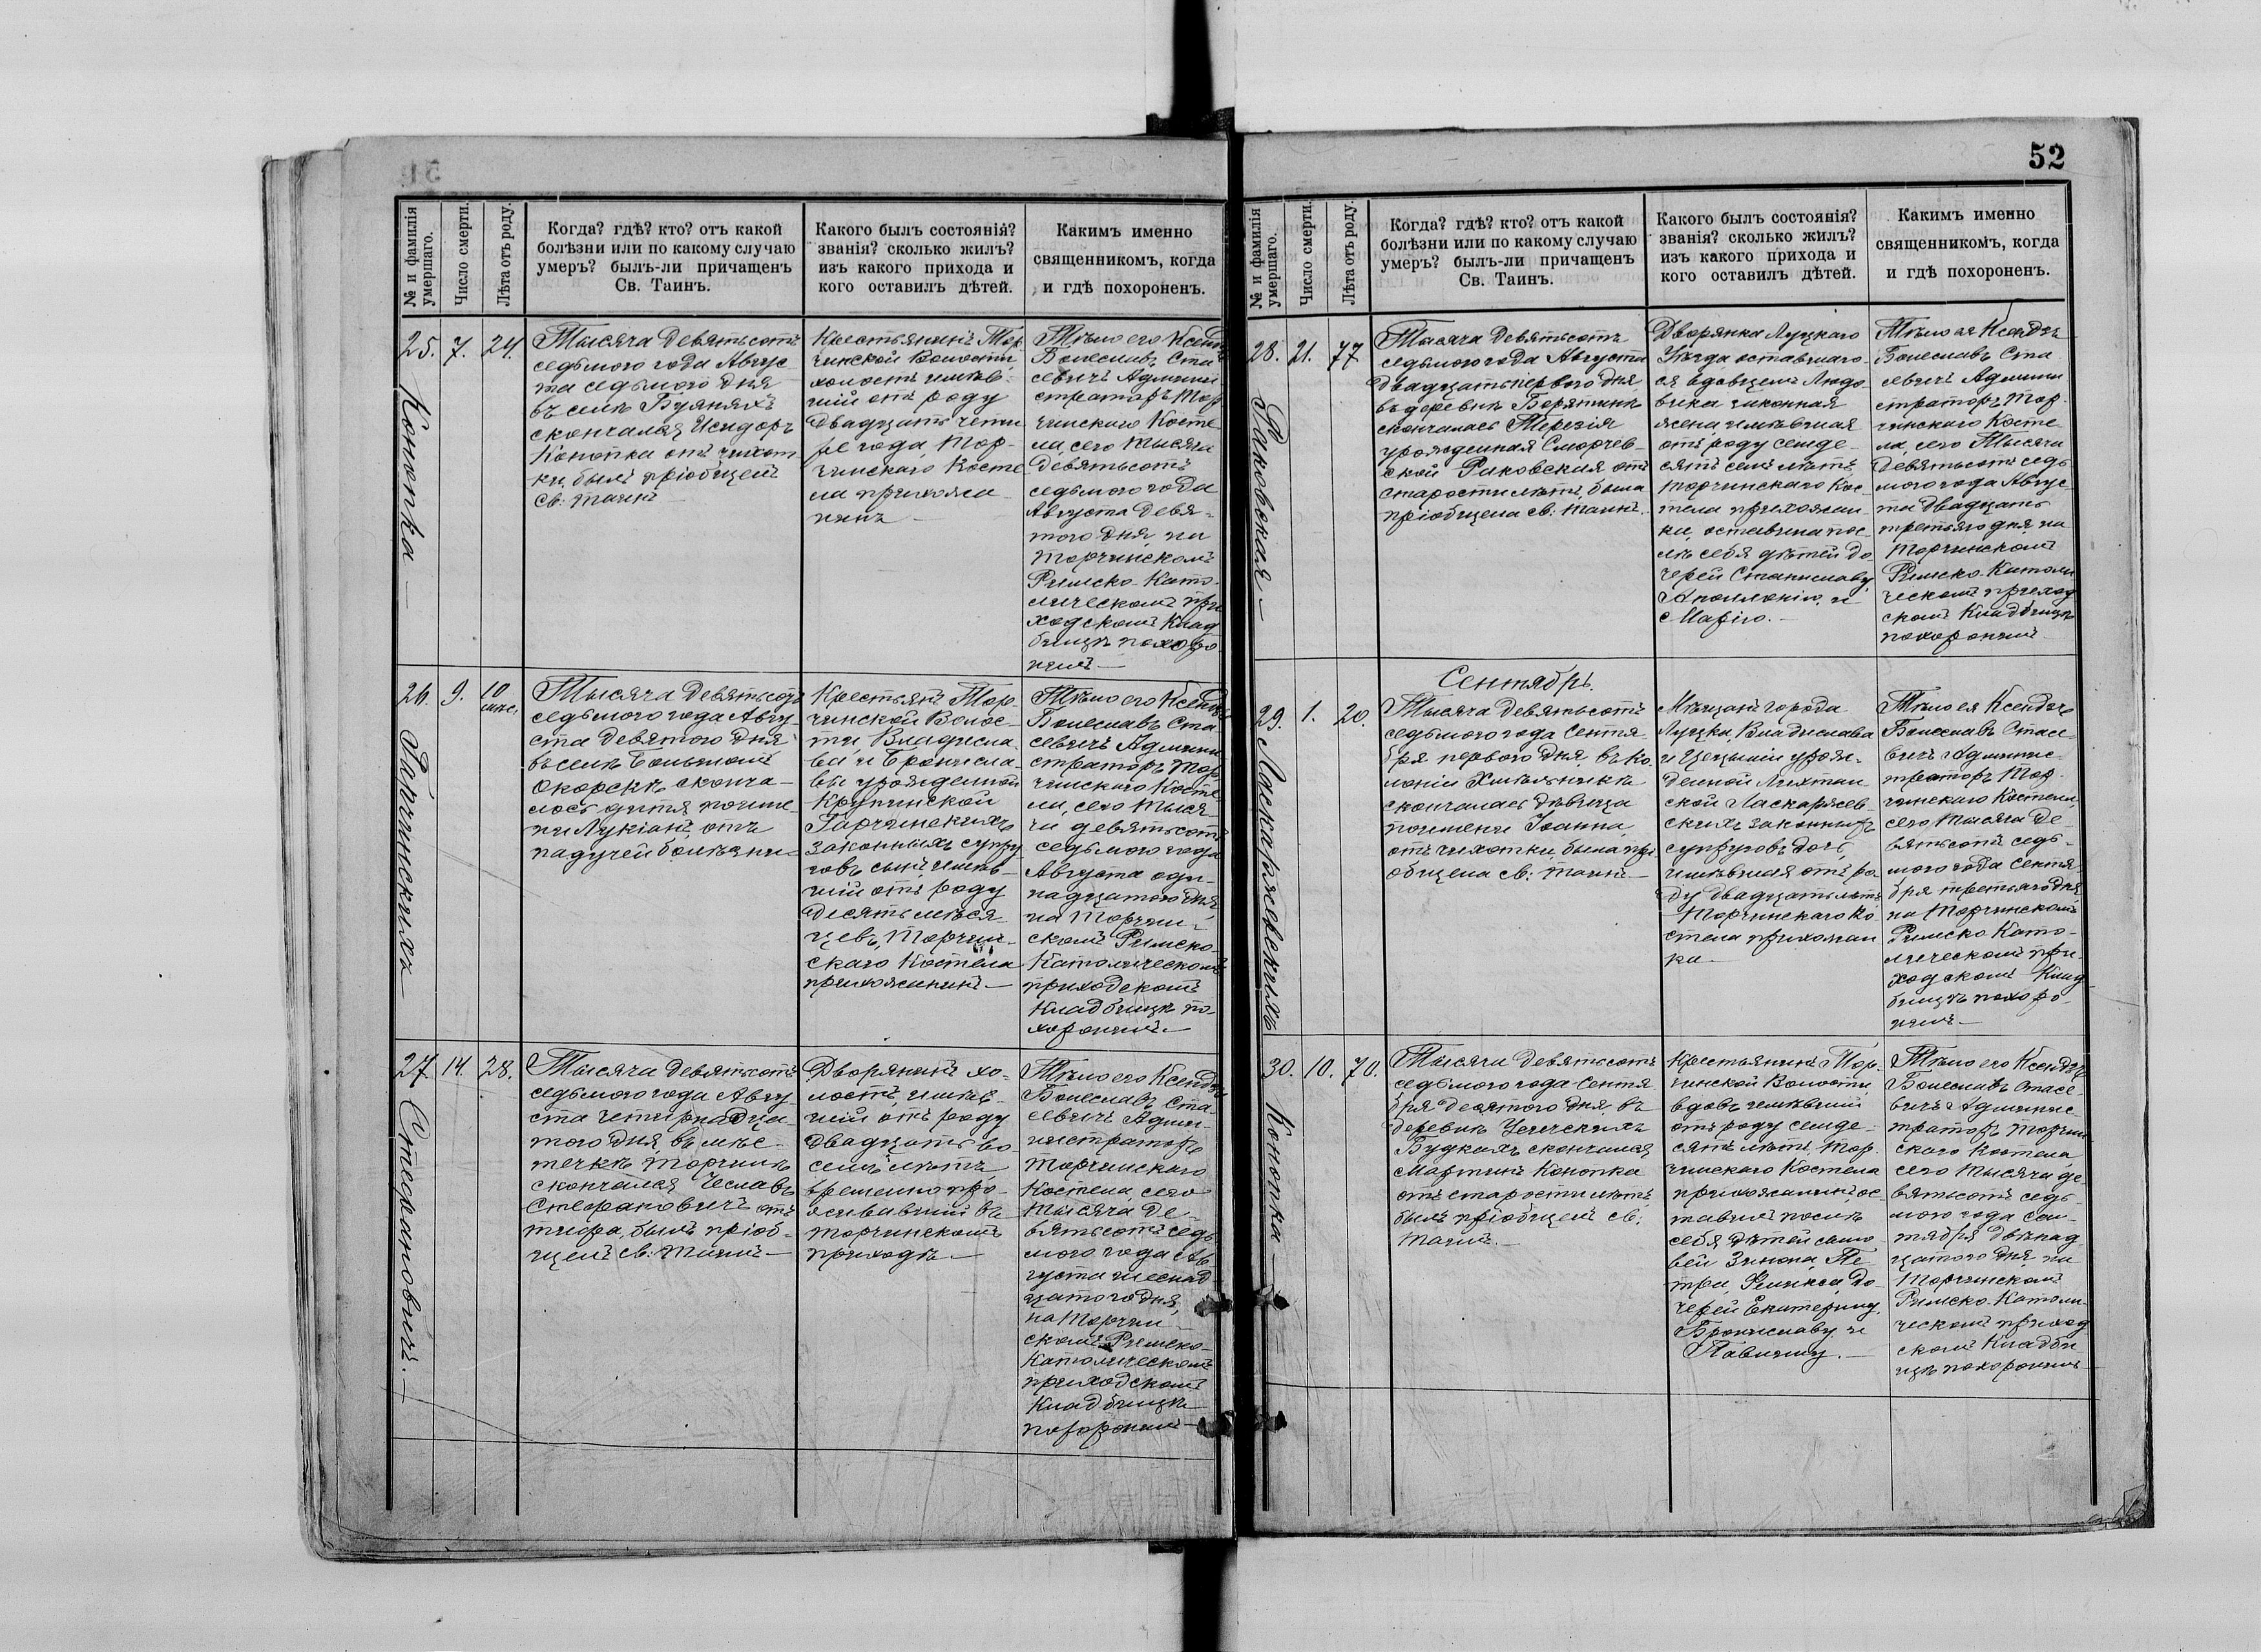 52
№ и фамилія умершаго.
Число смерти.
Лѣта отъ роду.
Когда? гдѣ? кто? отъ какой
болѣзни или по какому случаю
умеръ? былъ-ли причащенъ
Св. Таинъ.
Какого былъ состоянія?
званія? сколько жилъ?
изъ какого прихода и
кого оставилъ дѣтей.
Какимъ именно
священникомъ, когда
и гдѣ похороненъ.
25. 7. 24.
Конопка
Тысяча девятьсотъ
седьмого года Авгус-
та седьмого дня
въ селѣ Буяняхъ
скончался Исидоръ
Конопка отъ чахот-
ки, былъ пріобщенъ
св: таинъ
Крестьянинъ Тор-
чинской Волости,
холостъ имѣв-
шій отъ роду
двадцать четы-
ре года, Тор-
чинскаго Косте-
ла прихожа-
нинъ
Тѣло его Ксендзъ
Болеславъ Ста-
севичъ Админи-
страторъ Тор-
чинскаго Косте-
ла, сего тысяча
девятьсотъ
седьмого года
Августа девя-
того дня, на
Торчинскомъ
Римско-Като-
лическомъ при-
ходскомъ клад-
бищѣ похоро-
нилъ
26. 9. 10 мѣс.
Гарчинскихъ
Тысяча девятьсотъ
седьмого года Авгу-
ста девятого дня
въ селѣ Большой
Окорскѣ сконча-
лось дитя поиме-
ни Лукіанъ, отъ
падучей болѣзни
Крестьянъ Тор-
чинской Волос-
ти, Владисла-
ва и Бронисла-
вы урожденной
Крупинской
Гарчинскихъ
законныхъ супру-
говъ сынъ, имѣв-
шій отъ роду
десять мѣся-
цевъ, Торчин-
скаго Костела
прихожанинъ
Тѣло его Ксендзъ
Болеславъ Ста-
севичъ Админи-
страторъ Тор-
чинскаго Косте-
ла, сего тыся-
ча девятьсотъ
седьмого года
Августа оди-
надцатого дня,
на Торчин-
скомъ Римско-
Католическомъ
приходскомъ
кладбищѣ по-
хоронилъ
27. 14. 28.
Стефановичъ.
Тысяча девятьсотъ
седьмого года Авгу-
ста четырнадца-
того дня, въ мѣс-
течкѣ Торчинѣ
скончался Чеславъ
Стефановичъ отъ
тифа, былъ пріоб-
щенъ св: таинъ
Дворянинъ хо-
лостъ, имѣв-
шій отъ роду
двадцать во-
семь лѣтъ
временно про-
живавшій въ
Торчинскомъ
приходѣ
Тѣло его Ксендзъ
Болеславъ Ста-
севичъ Адми-
нистраторъ
Торчинскаго
Костела, сего
тысяча де-
вятьсотъ седь-
мого года Ав-
густа шеснад-
цатого дня,
на Торчин-
скомъ Римско-
Католическомъ
приходскомъ
кладбищѣ
похоронилъ
№ и фамилія умершаго.
Число смерти.
Лѣта отъ роду.
Когда? гдѣ? кто? отъ какой
болѣзни или по какому случаю
умеръ? былъ-ли причащенъ
Св. Таинъ.
Какого былъ состоянія?
званія? сколько жилъ?
изъ какого прихода и
кого оставилъ дѣтей.
Какимъ именно
священникомъ, когда
и гдѣ похороненъ.
28. 21. 77
Раковская
Тысяча девятьсотъ
седьмого года Августа
двадцать первого дня
въ деревнѣ Борятинѣ
скончалась Терезія
урожденная Сморчев-
ской Раковская отъ
старости лѣтъ, была
пріобщена св: таинъ.
Дворянка Луцкаго
Уѣзда, оставшаго-
ся вдовцемъ Людо-
вика законная
жена имѣвшая
отъ роду семде-
сятъ семь лѣтъ
Торчинскаго Кос-
тела прихожан-
ка, оставила пос-
лѣ себя дѣтей до-
черей Станиславу,
Аполлонію, и
Марію.
Тѣло ея Ксендзъ
Болеславъ Ста-
севичъ Админи-
страторъ Тор-
чинскаго Косте-
ла, сего Тысяча
девятьсотъ седь-
мого года Авгус-
та двадцать
третьяго дня, на
Торчинскомъ
Римско-Католи-
ческомъ приход-
скомъ кладбищѣ
похоронилъ
Сентябрь.
29. 1. 20.
Ласкаржевскихъ
Тысяча девятьсотъ
седьмого года Сентя-
бря первого дня, въ ко-
лоніи Хмѣльникѣ
скончалась дѣвица
поимени Іоанна,
отъ чахотки, была прі-
общена св: таинъ
Мѣщанъ города
Луцка, Владислава
и Цециліи урож-
денной Лихтан-
ской Ласкаржев-
скихъ законныхъ
супруговъ дочь,
имѣвшая отъ ро-
ду двадцать лѣтъ
Торчинскаго Ко-
стела прихожан-
ка
Тѣло ея Ксендзъ
Болеславъ Стасе-
вичъ Админис-
траторъ Тор-
чинскаго Костела,
сего тысяча де-
вятьсотъ седь-
мого года Сентя-
бря третьяго дня,
на Торчинскомъ
Римско Като-
лическомъ при-
ходскомъ клад-
бищѣ похоро-
нилъ
30. 10. 70.
Конопка
Тысяча девятьсотъ
седьмого года Сентя-
бря десятого дня, въ
деревнѣ Усичскихъ
Будкахъ скончался
Мартинъ Конопка
отъ старости лѣтъ,
былъ пріобщенъ св:
таинъ.
Крестьянинъ Тор-
чинской Волости,
вдовъ имѣвшій
отъ роду семде-
сятъ лѣтъ, Тор-
чинскаго Костела
прихожанинъ, ос-
тавилъ послѣ
себя дѣтей сыно-
вей Зенона, Пе-
тра, Феликса, до-
черей Екатерину,
Брониславу и
Павлину.
Тѣло его Ксендзъ
Болеславъ Стасе-
вичъ Админис-
траторъ Торчин-
скаго Костела
сего тысяча де-
вятьсотъ седь-
мого года Сен-
тября двѣнад-
цатого дня, на
Торчинскомъ
Римско-Католи-
ческомъ приход-
скомъ кладби-
щѣ похоронилъ